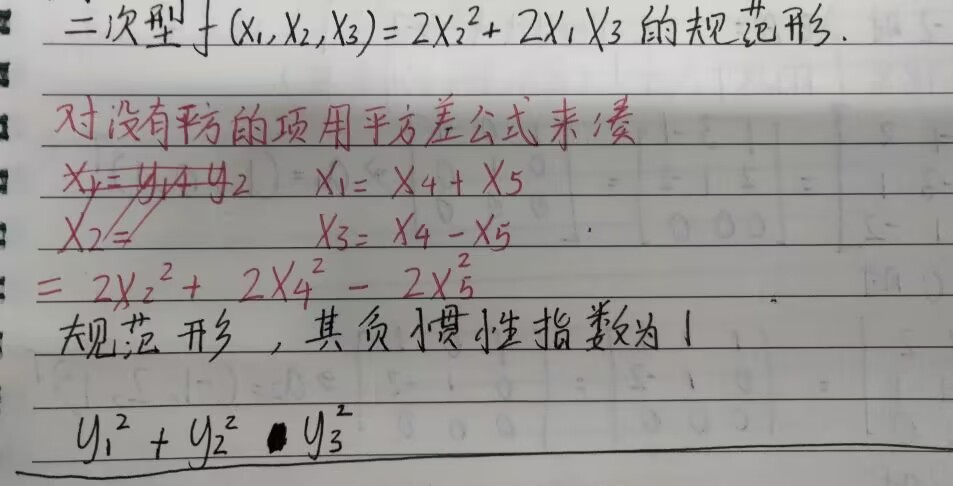 二次型 f(x₁,x₂,x₃)=2x₂²+2x₁x₃ 的规范形.
对没有平方的项用平方差公式来凑
x₁=y₁+y₂ x₁=x₄+x₅
x₂= x₃=x₄-x₅
=2x₂²+2x₄²-2x₅²
规范形,其负惯性指数为1
y₁²+y₂² y₃²